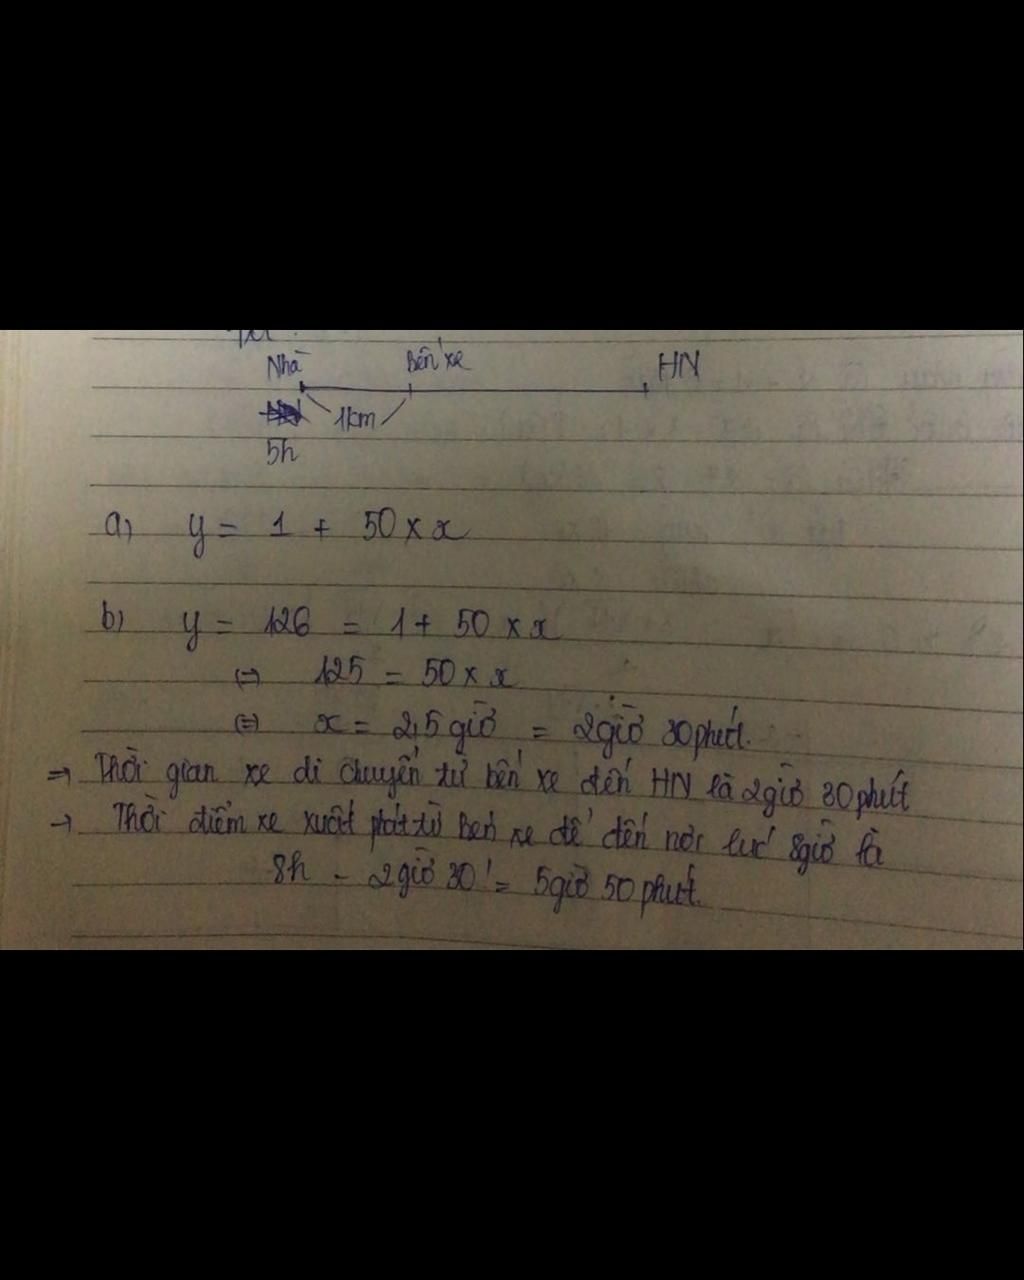 Nhà Bến xe HN
1km
5h
a) y = 1 + 50 × x
b) y = 126 = 1 + 50 × x
(=) 125 = 50 × x
(=) x = 2,5 giờ = 2 giờ 30 phút.
=> Thời gian xe di chuyển từ bến xe đến HN là 2 giờ 30 phút
-> Thời điểm xe xuất phát từ bến xe để đến nơi lúc 8 giờ là
8h - 2 giờ 30' = 5 giờ 50 phút.